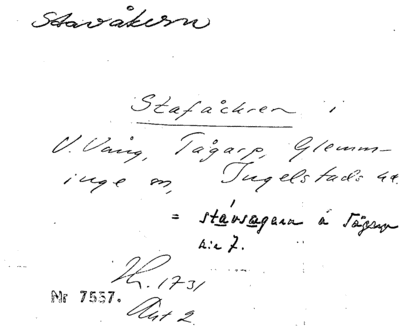 Stavåkern
Stafåckren i
V. Vång, Tågarp, Glemm-
inge sn, Ingelstads hd.
= stávsagarn å Tågarp
n:r 7.
1731
Nr 7557.
Akt 2